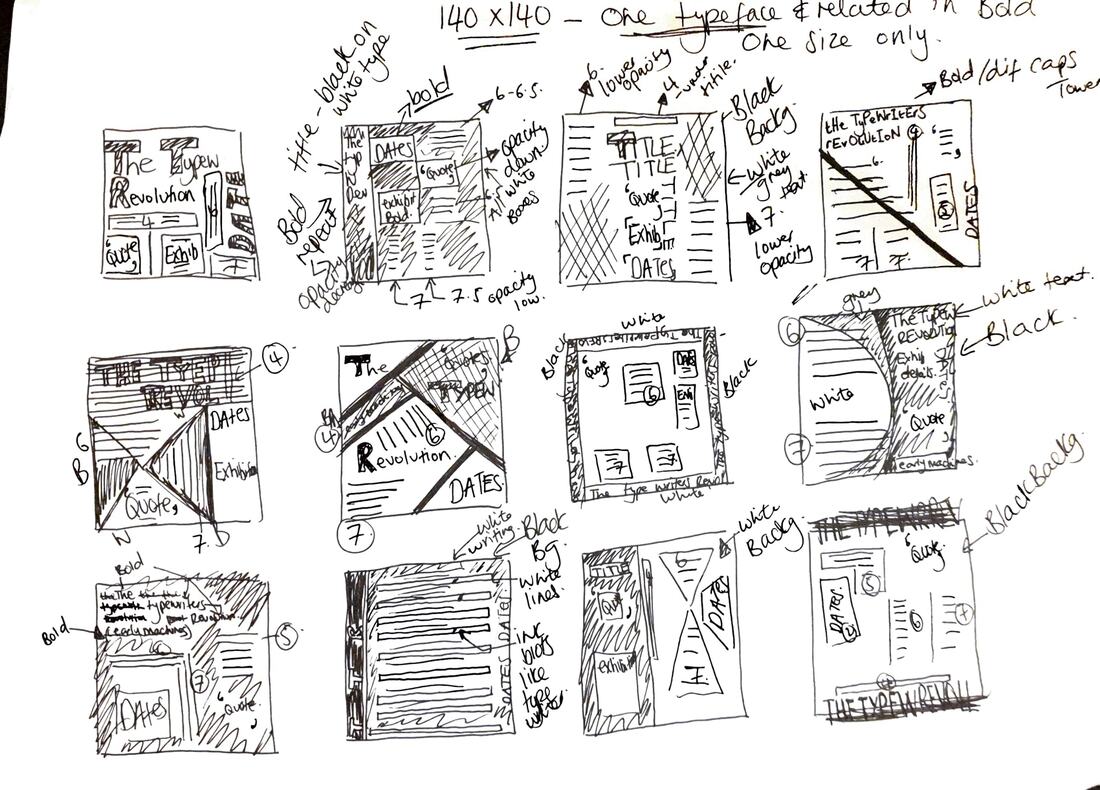 140 x 140 – One typeface & related in Bold
One size only.
title – black on
white type
bold
6-6.5.
opacity
down.
All white
boxes
Bold
repeat
opacity
7
7.5 opacity
low.
DATES
'Quote,
exhibit
Bold.
6.
lower
opacity
4
under
title.
Black
Backg.
white
grey
text
7.
lower
opacity
Bold/dif caps
The Typew
Revolution
4
'Quote,
Exhib
DATES
7
TITLE
TITLE
'Quote,
Exhib
DATES
tHe TypeWRiTERS
rEvOlUTION
4
6.
DATES
7
7.
THE TYPE
REVOL
4
W
DATES
6
B
Exhibition
'Quote,
W
7.
The
Quotes,
B
TYPEW
4
6
Revolution.
DATES
7
white
Black
'Quote,
DATES
6
Exhi
7
7
Black
The type writers Revol
white
grey
white text.
Black.
6
The Typew
REVOLUTION
Exhib
details.
white
'Quote,
7
early machines.
Bold
Bold
typewriters
Revolution
(early machines)
5
7
DATES
'Quote,
white
writing.
Black
BG.
white
lines.
ink
blots
like
type
writer.
DATES DATES
white
Backg.
TITLE
'Quote,
6
DATES
exhibition
7.
THE TYPEWRIT
Black Backg.
'Quote,
5
DATES
6
7
THE TYPEW REVOLU